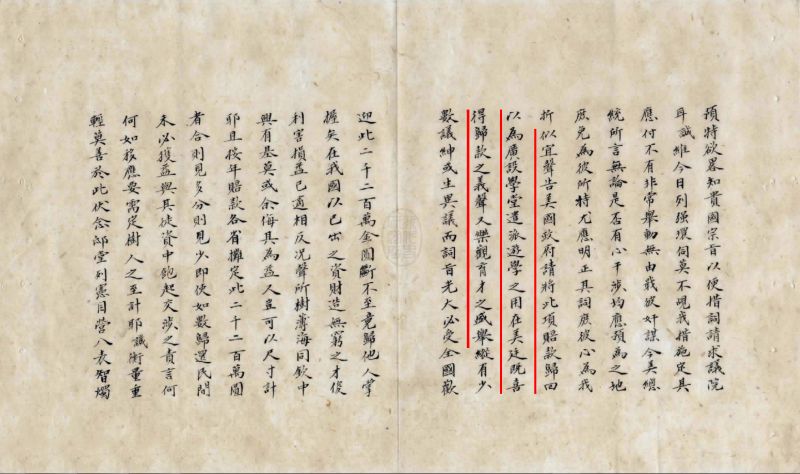 預特欲畧知貴國宗旨以便措詞請求議院
耳誠維今日列强環伺莫不覘我措施定其
應付不有非常舉動無由戢彼奸謀今美總
統所言無論是否有心干涉均應預為之地
庶免為彼所持尤應明正其詞庶彼心為我
折似宜聲告美國政府請將此項賠款歸回
以為廣設學堂遣派遊學之用在美廷既喜
得歸款之義聲又樂觀育才之盛舉縱有少
數議紳或生異議而詞旨光大必受全國歡
迎此二千二百萬金圓斷不至竟歸他人掌
握矣在我國以已出之資財造無窮之才俊
利害損益已適相反況聲所樹薄海同欽中
興有基莫或余侮其為益人豈可以尺寸計
耶且按年賠款各省攤定此二千二百萬圓
者合則見多分則見少即使如數歸還民間
未必獲益與其徒資中飽起交涉之責言何
何如移應要需定樹人之至計耶誠衡量重
輕莫善於此伏念邸堂列憲目營八表智燭